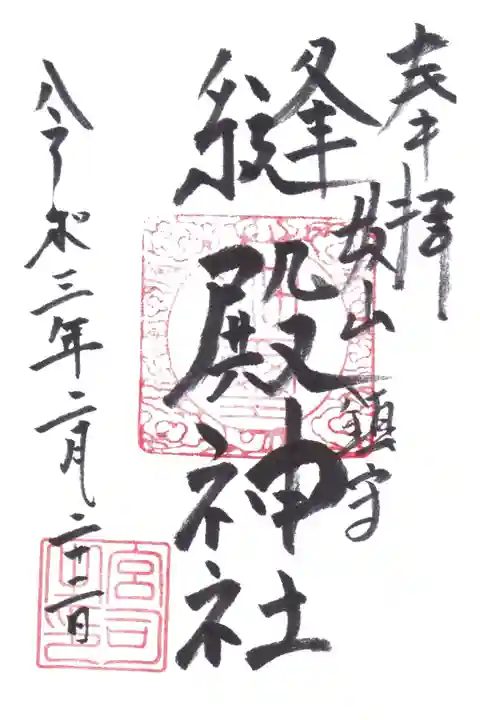 奉拝
女山鎮守
縫殿神社
令和三年二月二十二日
宮司